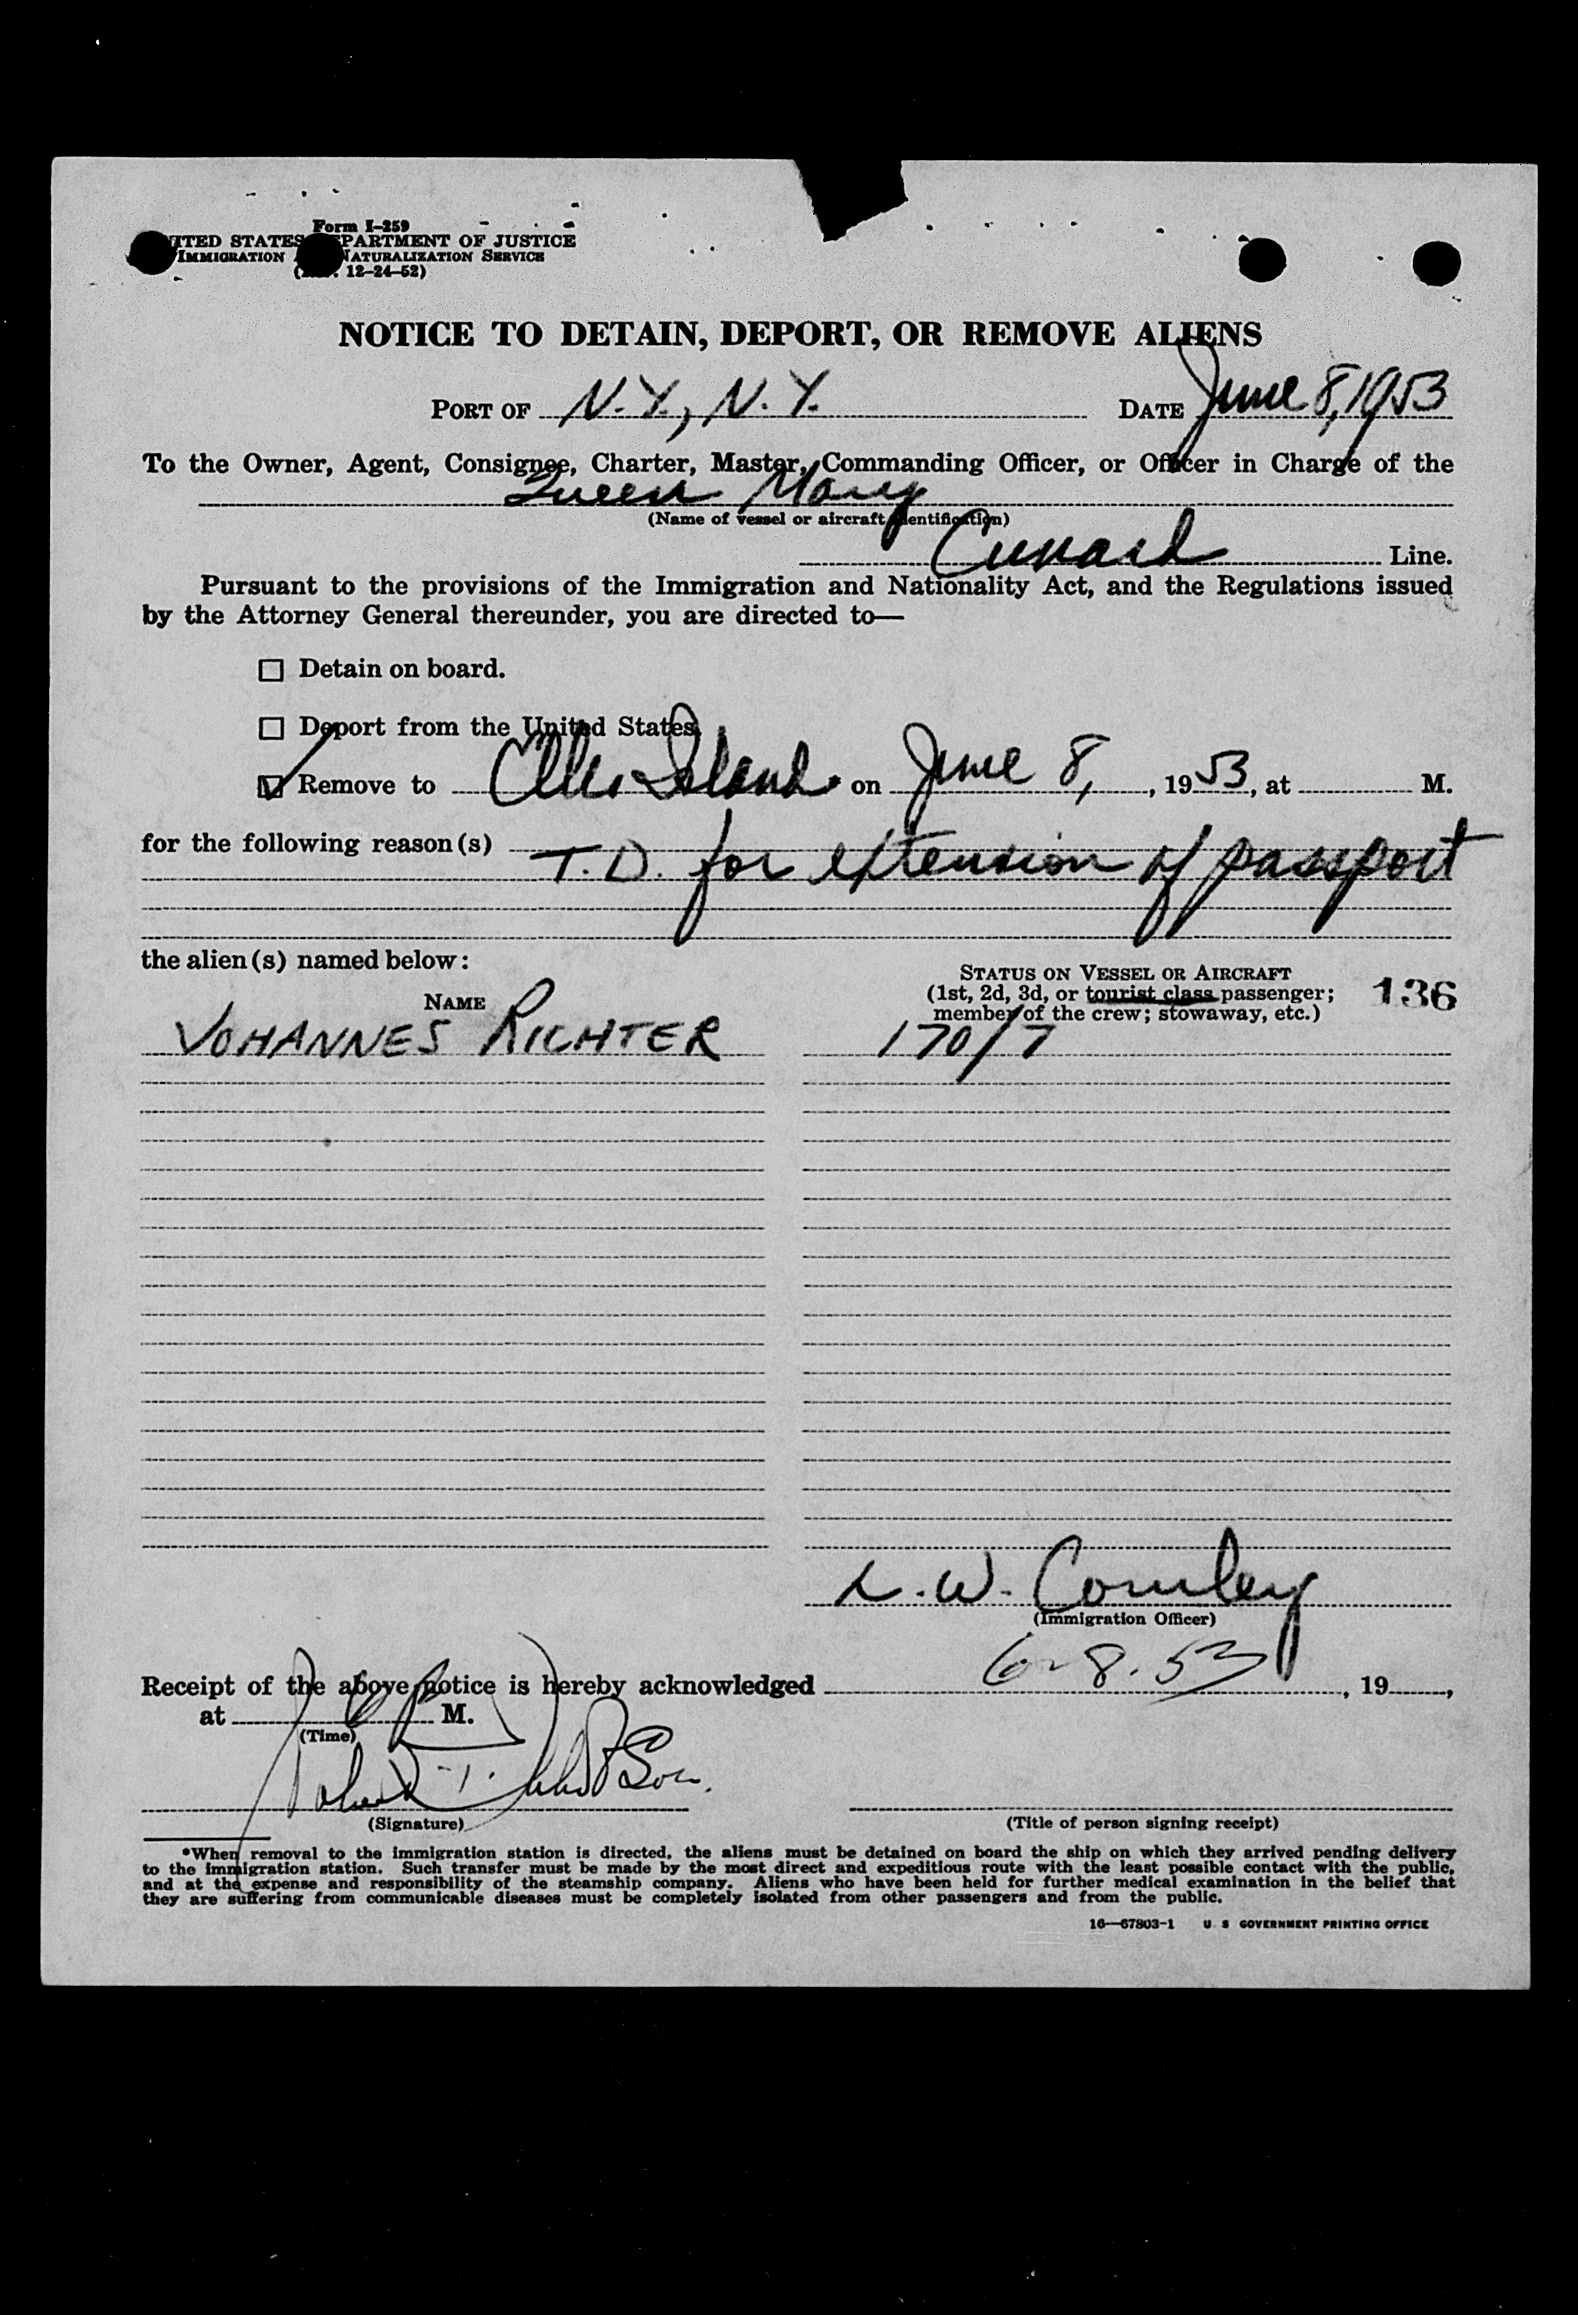 Form I-259
UNITED STATES DEPARTMENT OF JUSTICE
IMMIGRATION NATURALIZATION SERVICE
12-24-52)
NOTICE TO DETAIN, DEPORT, OR REMOVE ALIENS
PORT OF N.Y., N.Y. DATE June 8, 1953
To the Owner, Agent, Consignee, Charter, Master, Commanding Officer, or Officer in Charge of the
Queen Mary
(Name of vessel or aircraft identification)
Cunard Line.
Pursuant to the provisions of the Immigration and Nationality Act, and the Regulations issued
by the Attorney General thereunder, you are directed to—
☐ Detain on board.
☐ Deport from the United States.
☑ Remove to Ellis Island on June 8, , 1953, at M.
for the following reason(s) T.D. for extension of passport
the alien(s) named below:
STATUS ON VESSEL OR AIRCRAFT
(1st, 2d, 3d, or tourist class passenger;
member of the crew; stowaway, etc.)
136
NAME
JOHANNES RICHTER 170/7
L. W. Comley
(Immigration Officer)
Receipt of the above notice is hereby acknowledged 6-8-53, 19 ,
at M.
(Time)
(Signature)
(Title of person signing receipt)
*When removal to the immigration station is directed, the aliens must be detained on board the ship on which they arrived pending delivery
to the immigration station. Such transfer must be made by the most direct and expeditious route with the least possible contact with the public,
and at the expense and responsibility of the steamship company. Aliens who have been held for further medical examination in the belief that
they are suffering from communicable diseases must be completely isolated from other passengers and from the public.
16—67803-1 U. S. GOVERNMENT PRINTING OFFICE